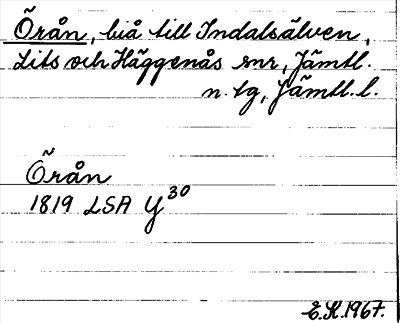 Örån, biå till Indalsälven,
Lits och Häggenås snr, Jämtl.
n. tg, Jämtl. l.
Örån
1819 LSA Y 30
E.K. 1967.